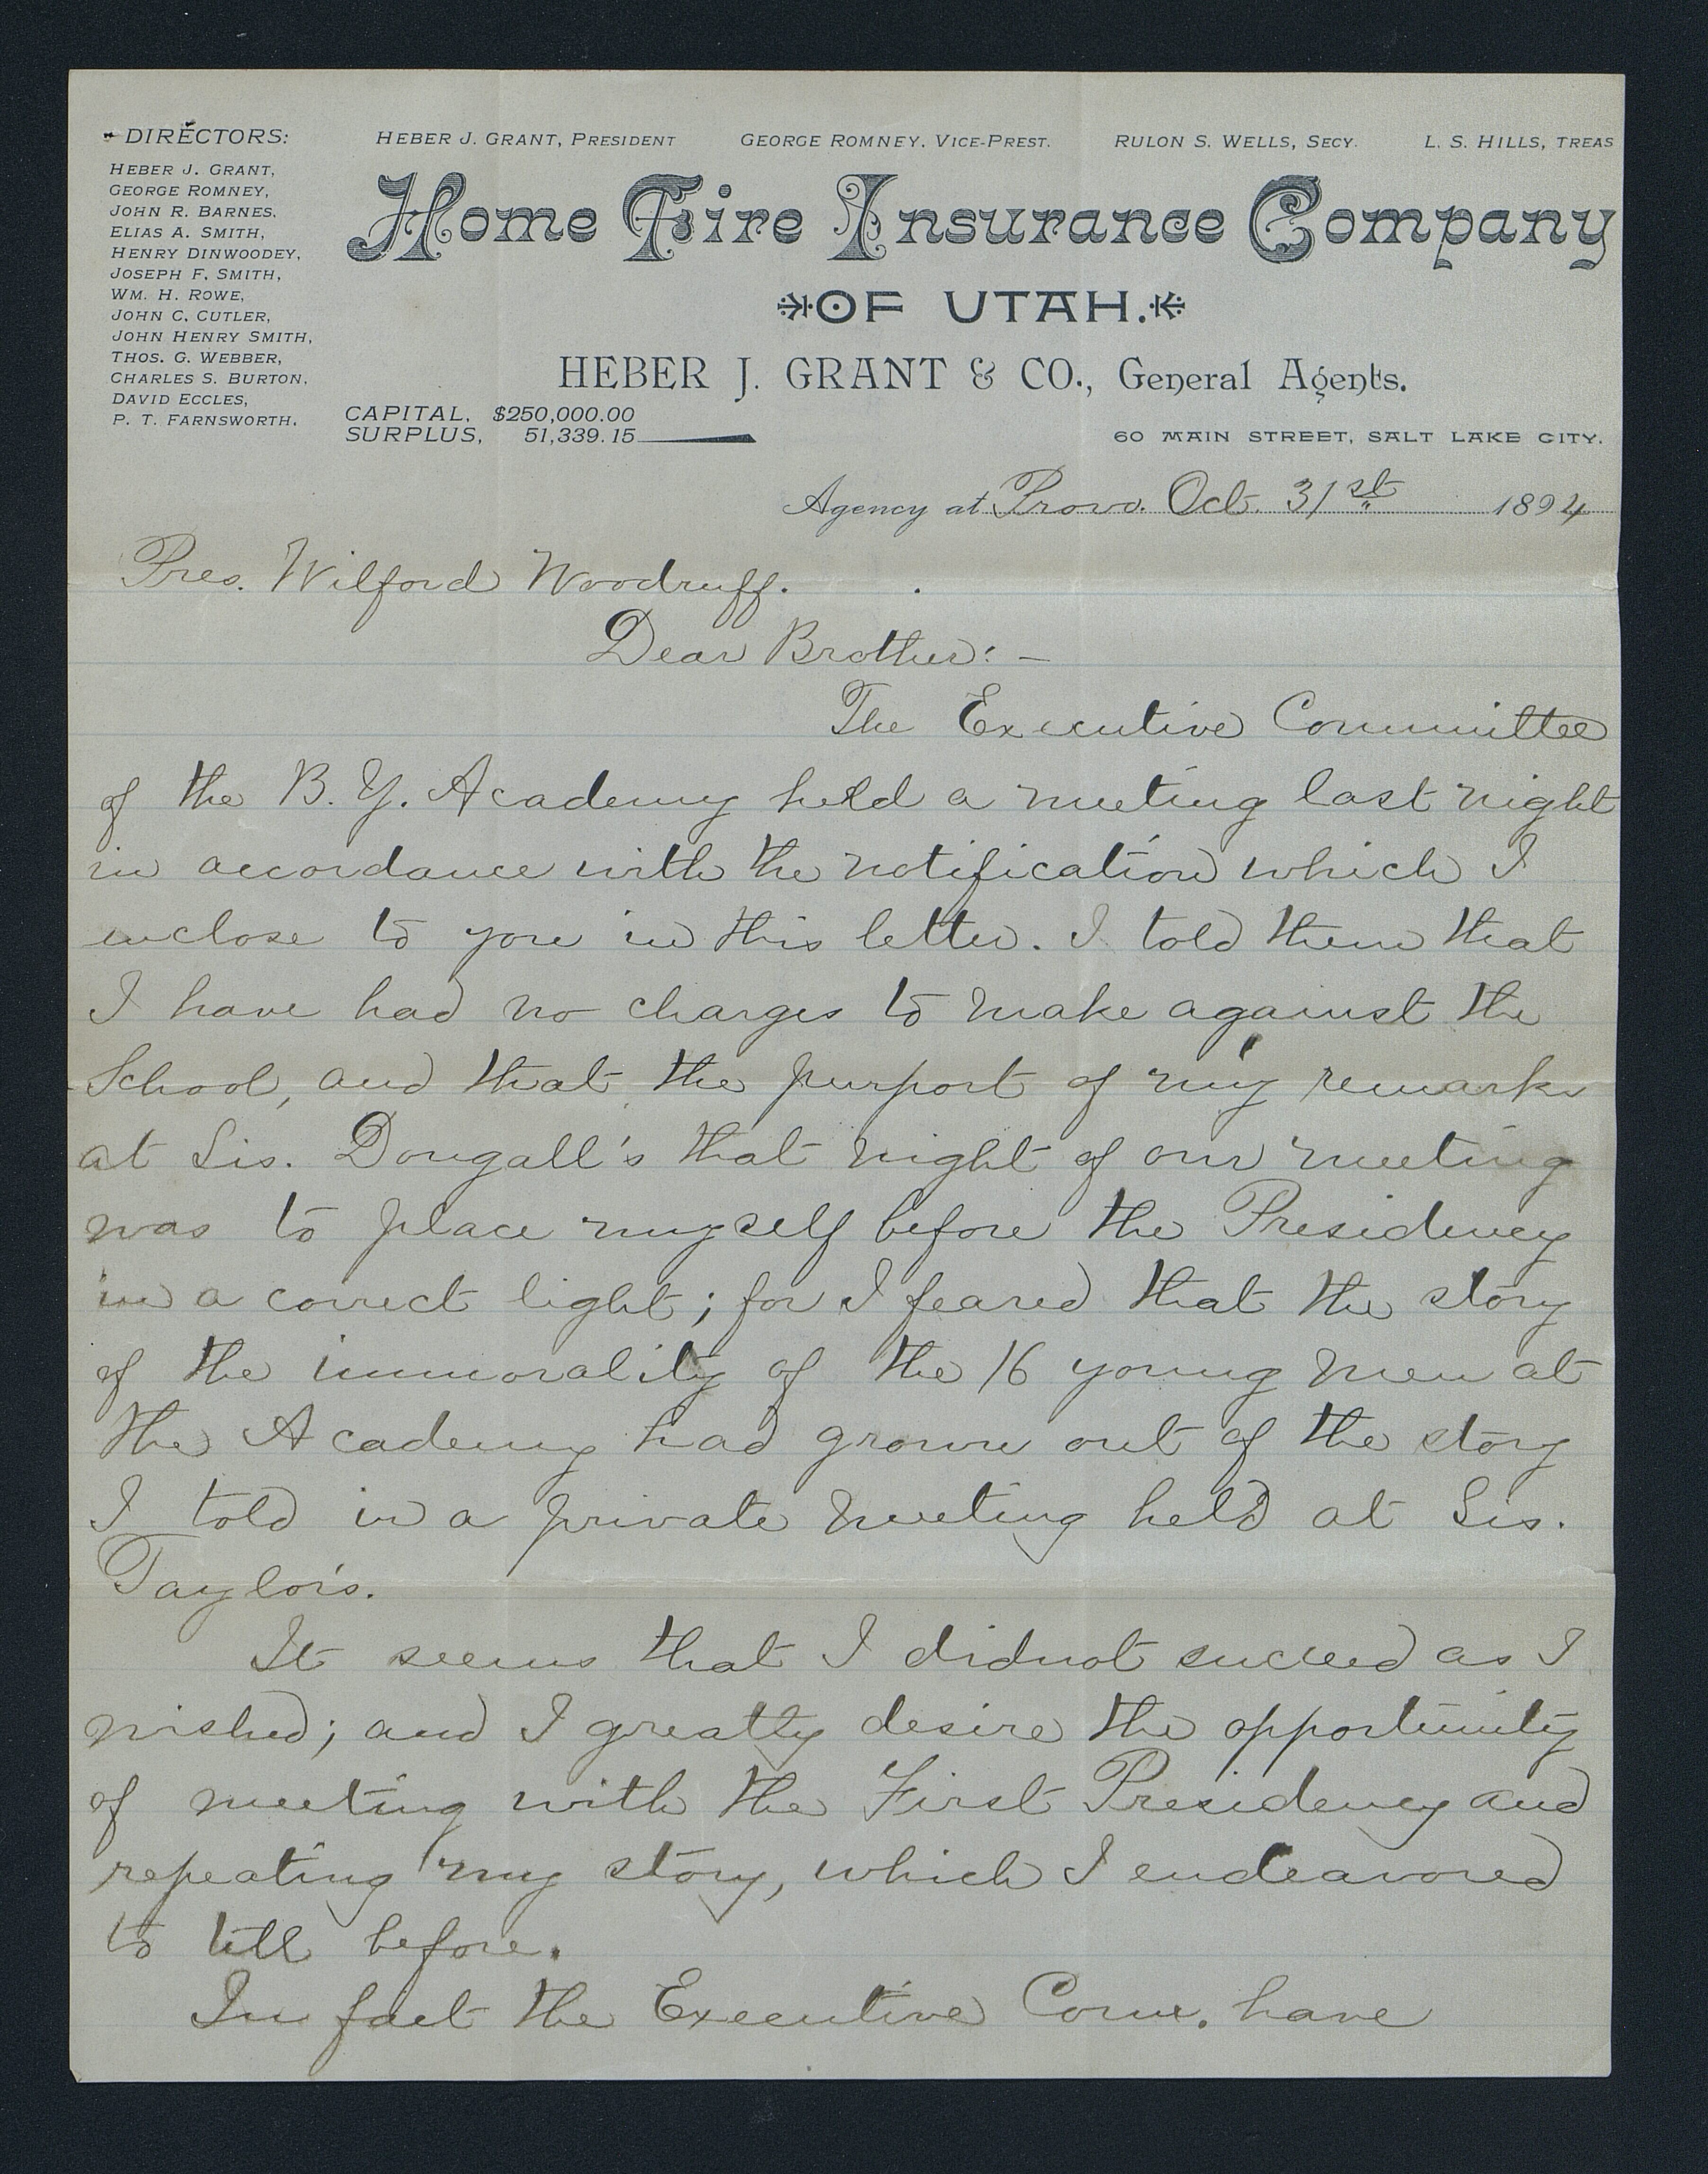 DIRECTORS:
HEBER J. GRANT,
GEORGE ROMNEY,
JOHN R. BARNES,
ELIAS A. SMITH,
HENRY DINWOODEY,
JOSEPH F. SMITH,
WM. H. ROWE,
JOHN C. CUTLER,
JOHN HENRY SMITH,
THOS. G. WEBBER,
CHARLES S. BURTON,
DAVID ECCLES,
P. T. FARNSWORTH.
HEBER J. GRANT, PRESIDENT GEORGE ROMNEY. VICE-PREST. RULON S. WELLS, SECY. L. S. HILLS, TREAS
Home Fire Insurance Company
OF UTAH.
HEBER J. GRANT & CO., General Agents.
CAPITAL, $250,000.00
SURPLUS, 51,339.15
60 MAIN STREET, SALT LAKE CITY.
Agency at Provo. Oct. 31st 1894
Pres. Wilford Woodruff.
Dear Brother: -
The Executive Committee
of the B. Y. Academy held a meeting last night
in accordance with the notification which I
enclose to you in this letter. I told them that
I have had no charges to make against the
School, and that the purport of my remarks
at Sis. Dougall's that night of our meeting
was to place myself before the Presidency
in a correct light; for I feared that the story
of the immorality of the 16 young men at
the Academy had grown out of the story
I told in a private meeting held at Sis.
Taylor's.
It seems that I didnot succeed as I
wished; and I greatly desire the opportunity
of meeting with the First Presidency and
repeating my story, which I endeavored
to tell before.
In fact the Executive Com. have